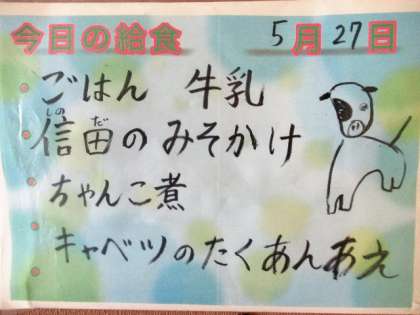 今日の給食 5月27日
ごはん 牛乳
信田のみそかけ
しのだ
ちゃんこ煮
キャベツのたくあんあえ